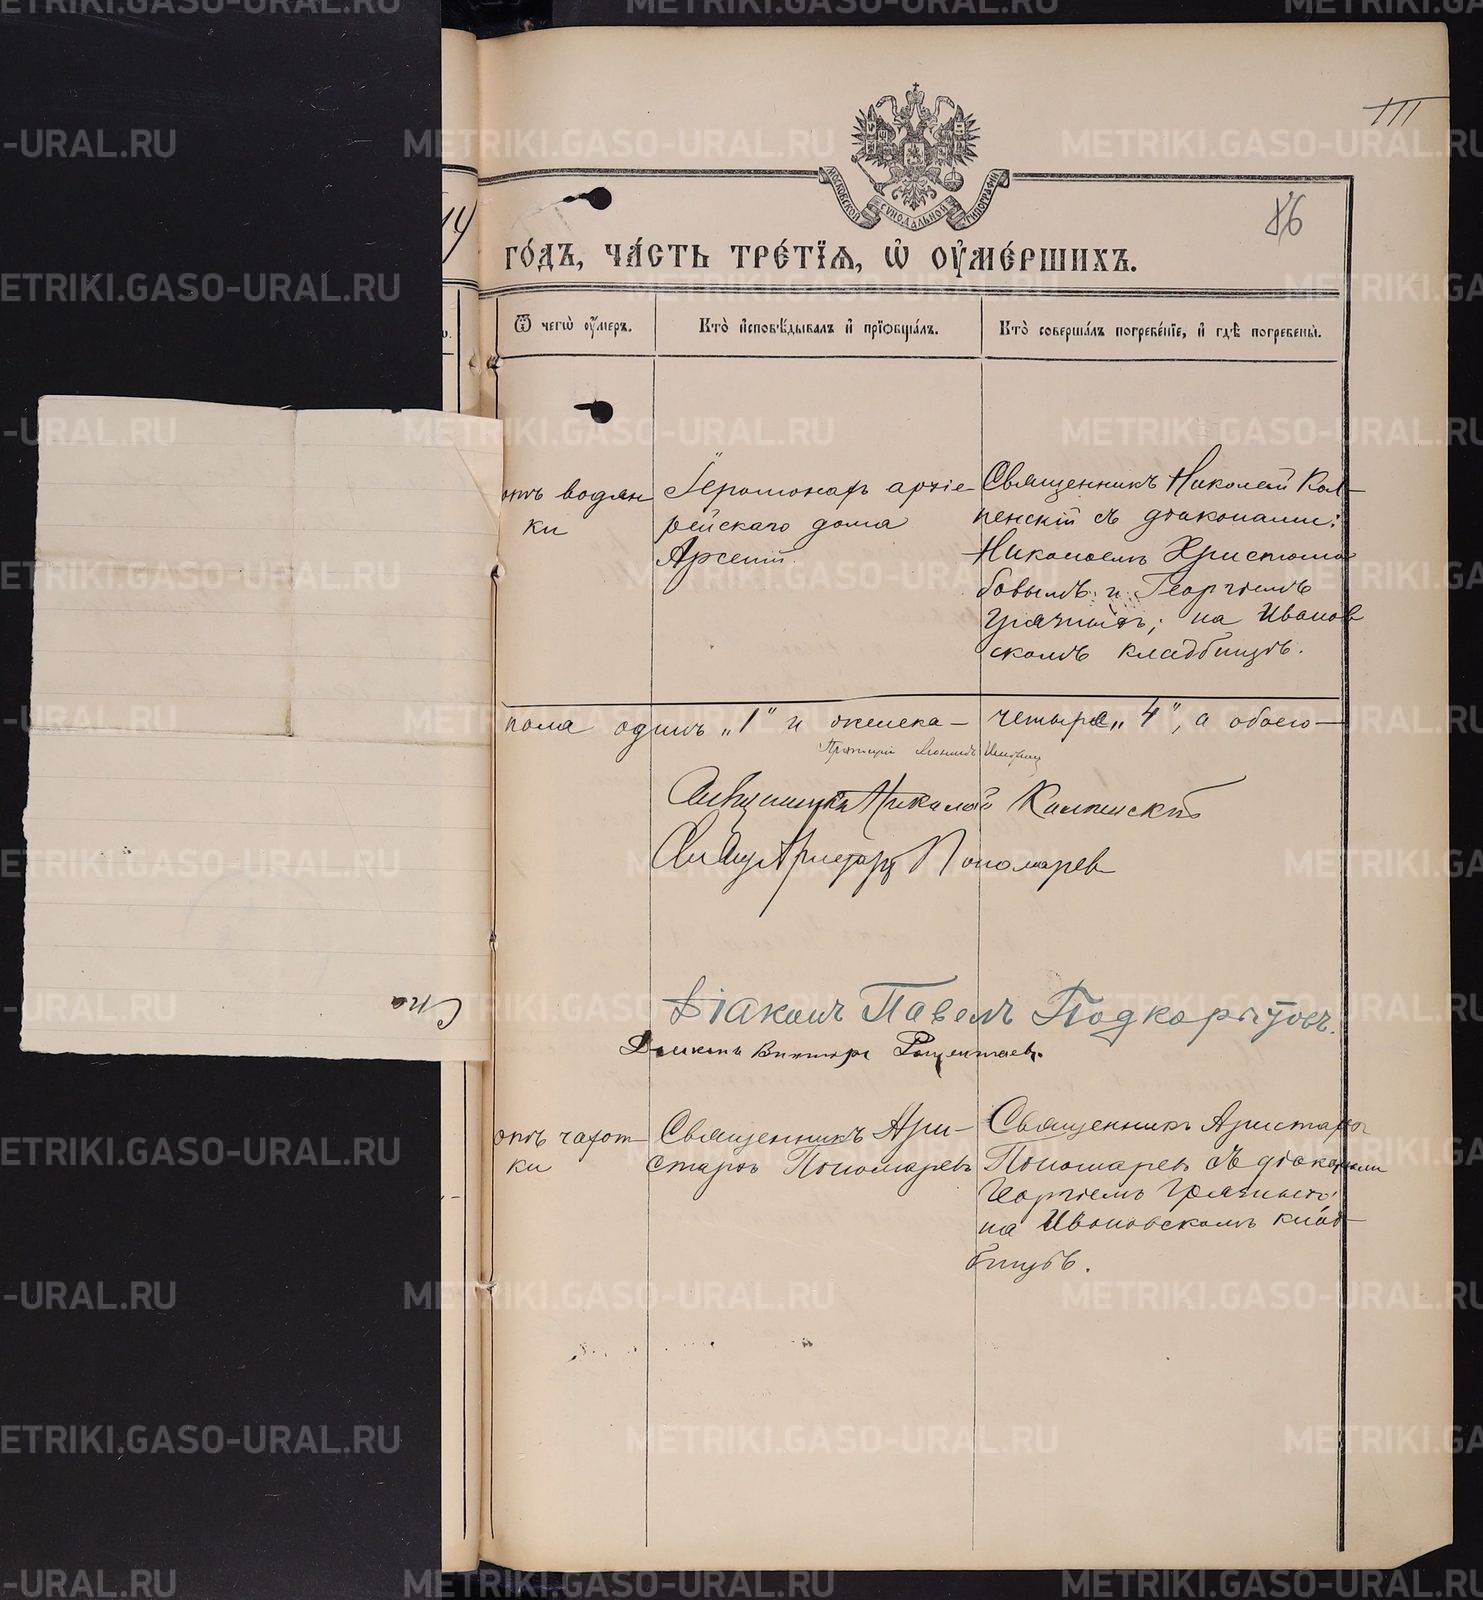 METRIKI.GASO-URAL.RU
III
86
МОСКОВСКОЙ СѴНОДАЛЬНОЙ ТИПОГРАФІИ
14
го́дъ, ча́сть тре́тїѧ, ѡ҆ ᲂу҆ме́ршихъ.
Ѿ чегѡ̀ ᲂу҆́меръ.
Кто̀ и҆сповѣ́дывалъ и҆ прїѡбща́лъ.
Кто̀ соверша́лъ погребе́нїе, и҆ гдѣ̀ погребены̀.
отъ водян
ки
Іеромонахъ архіе-
рейскаго дома
Арсеній.
Священникъ Николай Кол-
пенскій съ діаконами:
Николаемъ Христолю
бовымъ и Георгіемъ
Грязныхъ; на Иванов
скомъ кладбищѣ.
пола одинъ „1“ и женска- четыре „4“, а обоего-
Протоіерей
Священникъ Николай Колпенскій
Свящ Аристархъ Пономарев
Діаконъ Павелъ Подкорытовъ.
Діаконъ Викторъ
Спа
отъ чахот-
ки
Священникъ Ари-
стархъ Пономаревъ
Священникъ Аристархъ
Пономаревъ съ діаконами
Георгіемъ Грязныхъ;
на Ивановскомъ клад-
бищѣ.